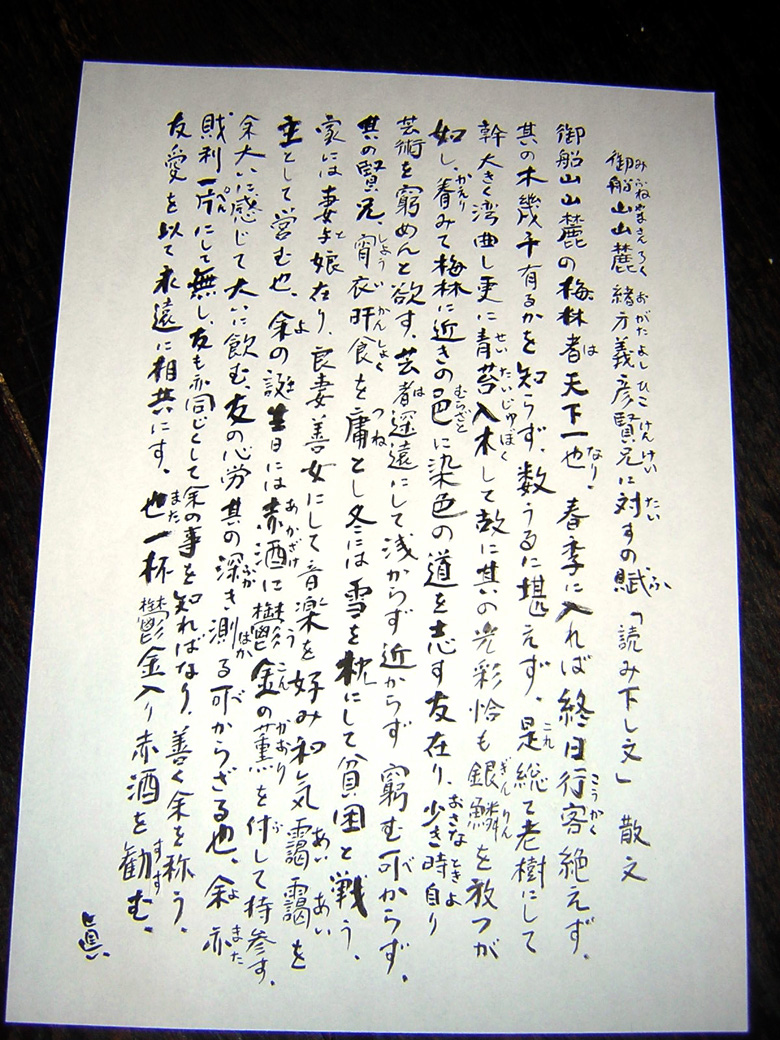 御船山山麓緒方義彦賢兄に対すの賦「読み下し文」 散文
御船山山麓の梅林者天下一也。春季に入れば終日行客絶えず。
其の木幾千有るかを知らず、数うるに堪えず。是総て老樹にして
幹大きく湾曲し更に青苔入木して故に其の光彩恰も銀鱗を放つが
如し、眷みて梅林に近きの邑に染色の道を志す友在り、少き時自り
芸術を窮めんと欲す。芸者遥遠にして浅からず近からず窮む可からず。
其の賢兄、宵衣旰食を庸とし冬には雪を枕にして貧困と戦う。
家には妻与娘在り、良妻善女にして音楽を好み和気靄靄を
主として営む也、余の誕生日には赤酒に鬱金の薫を付して持参す。
余大いに感じて大いに飲む、友の心労其の深き測る可からざる也、余亦
財利一片にして無し、友も亦同じくして余の事を知ればなり、善く余を称う。
友愛を以て永遠に相共にす。也一杯鬱金入り赤酒を勧む。
眞